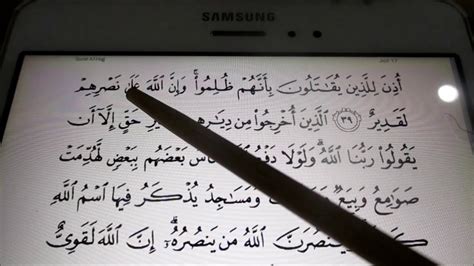 SAMSUNG
أُذِنَ لِلَّذِينَ يُقَٰتَلُونَ بِأَنَّهُمْ ظُلِمُوا۟ ۚ وَإِنَّ ٱللَّهَ عَلَىٰ نَصْرِهِمْ
لَقَدِيرٌ ﴿٣٩﴾ ٱلَّذِينَ أُخْرِجُوا۟ مِن دِيَٰرِهِم حَقٍّ إِلَّآ أَن
يَقُولُوا۟ رَبُّنَا ٱللَّهُ ۗ وَلَوْلَا دَفْعُ بَعْضَهُم بِبَعْضٍ لَّهُدِّمَتْ
صَوَٰمِعُ وَبِيَعٌ وَمَسَٰجِدُ يُذْكَرُ فِيهَا ٱسْمُ ٱللَّهِ
ٱللَّهُ مَن يَنصُرُهُۥٓ ۗ إِنَّ ٱللَّهَ لَقَوِىٌّ